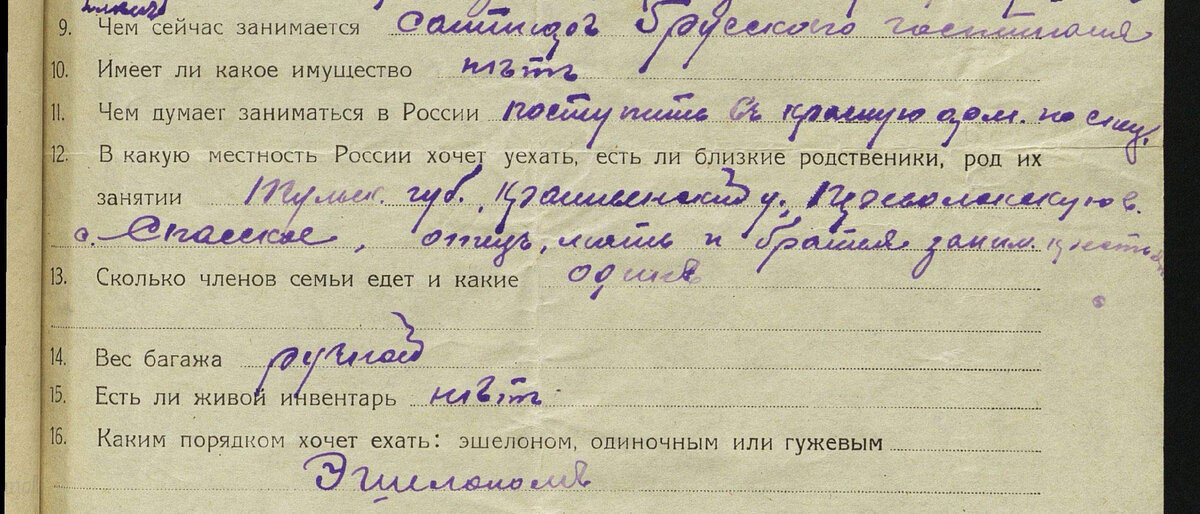 9. Чем сейчас занимается госпиталя
10. Имеет ли какое имущество нѣтъ
11. Чем думает заниматься в России поступить въ красную арм. по спец.
12. В какую местность России хочет уехать, есть ли близкие родственики, род их
занятии Тульск. губ.
с. Спасское, отецъ, мать и братья заним.
13. Сколько членов семьи едет и какие одинъ
14. Вес багажа ручной
15. Есть ли живой инвентарь нѣтъ
16. Каким порядком хочет ехать: эшелоном, одиночным или гужевым
Эшелономъ